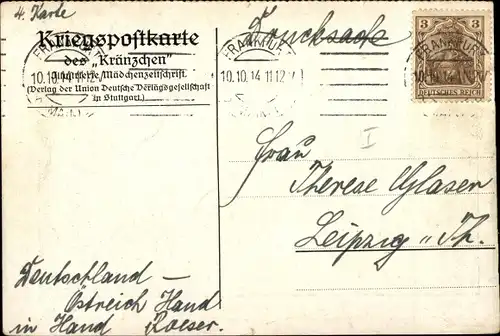 4. Karte
Kriegspostkarte
des „Kränzchen"
Illustrierte Mädchenzeitschrift.
(Verlag der Union Deutsche Verlagsgesellschaft
in Stuttgart.)
Drucksache
FRANKFURT
10.10.14 11-12 V
(MAIN)
FRANKFURT
10.10.14 11-12 V
FRANKFURT
10.10.14
3 3
DEUTSCHES REICH
I
Frau
Therese Glaser
Leipzig „Th.
Deutschland —
Östreich Hand
in Hand Roeser.